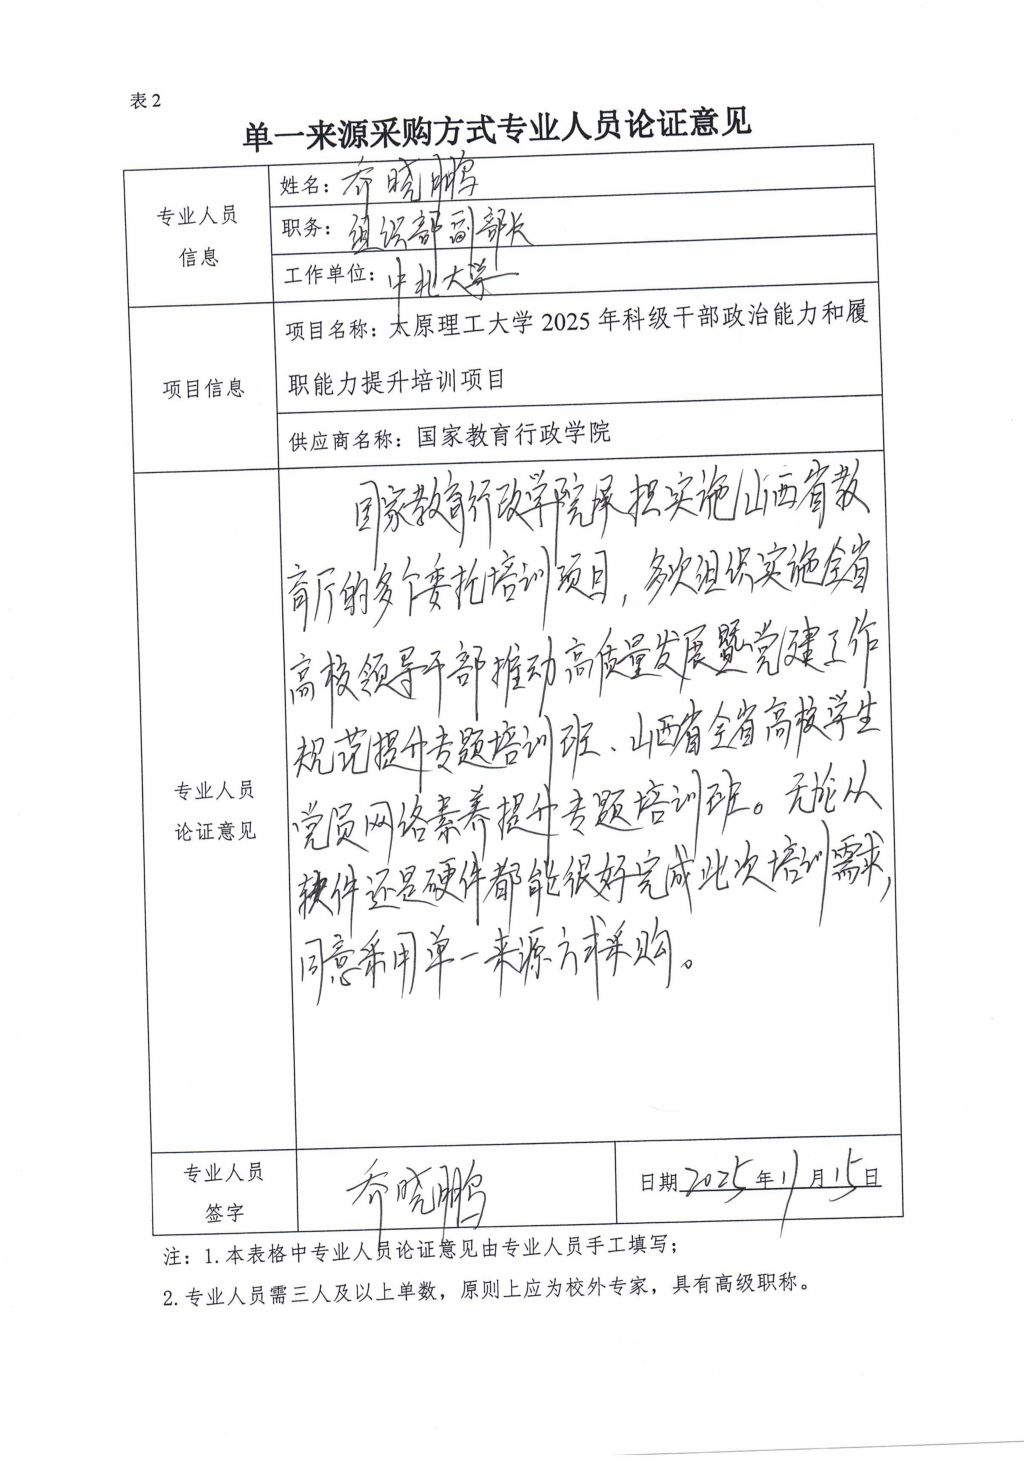 表2
单一来源采购方式专业人员论证意见
专业人员
信息
姓名：乔晓鹏
职务：组织部副部长
工作单位：中北大学
项目信息
项目名称：太原理工大学2025年科级干部政治能力和履
职能力提升培训项目
供应商名称：国家教育行政学院
专业人员
论证意见
国家教育行政学院承担实施山西省教
育厅的多个委托培训项目，多次组织实施全省
高校领导干部推动高质量发展暨党建工作
规范提升专题培训班、山西省全省高校学生
党员网络素养提升专题培训班。无论从
软件还是硬件都能很好完成此次培训需求，
同意采用单一来源方式采购。
专业人员
签字
乔晓鹏
日期2025年11月15日
注：1.本表格中专业人员论证意见由专业人员手工填写；
2.专业人员需三人及以上单数，原则上应为校外专家，具有高级职称。